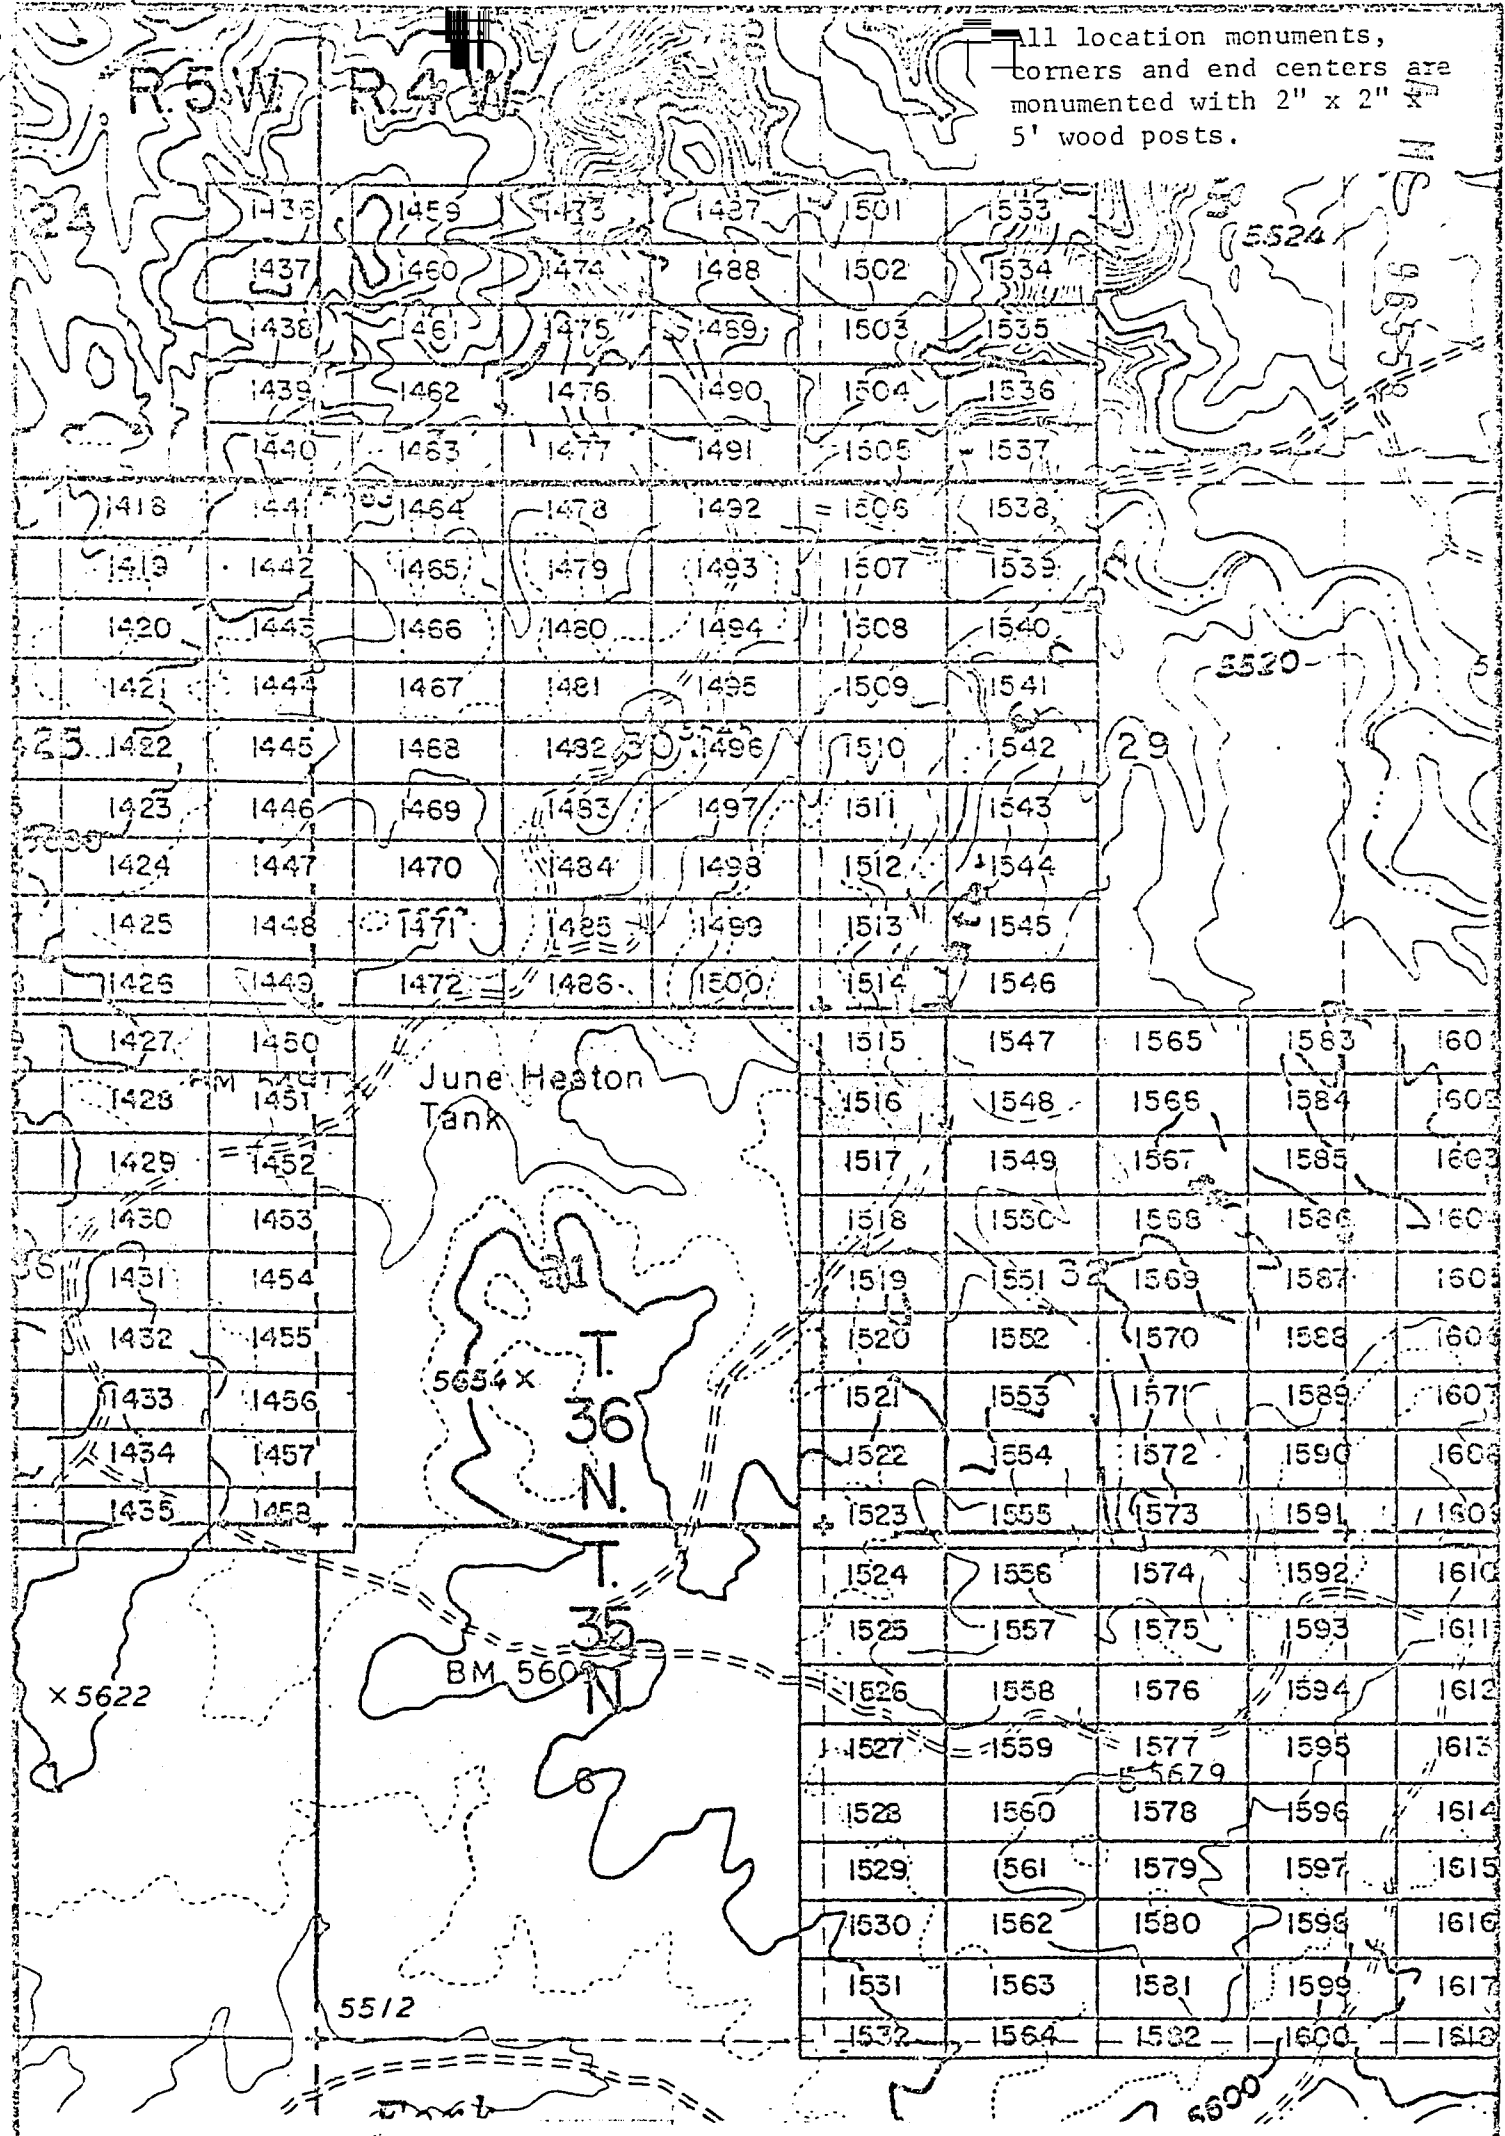 All location monuments,
corners and end centers are
monumented with 2" x 2" x
5' wood posts.
R.5W. R.4W.
24 1436 1459 1473 1487 1501 1533 5524
1437 1460 1474 1488 1502 1534
1438 1461 1475 1489 1503 1535
1439 1462 1476 1490 1504 1536
1440 1463 1477 1491 1505 1537
1418 1441 1464 1478 1492 1506 1538
1419 1442 1465 1479 1493 1507 1539
1420 1443 1466 1480 1494 1508 1540
1421 1444 1467 1481 1495 1509 1541 5520
25 1422 1445 1468 1482 30 1496 1510 1542 29
1423 1446 1469 1483 1497 1511 1543
1424 1447 1470 1484 1498 1512 1544
1425 1448 1471 1485 1499 1513 1545
1426 1449 1472 1486 1500 1514 1546
1427 1450 1515 1547 1565 1583
June Heaton
Tank
1428 1451 1516 1548 1566 1584
1429 1452 1517 1549 1567 1585 1603
1430 1453 1518 1550 1568 1586
1431 1454 31 1519 1551 32 1569 1587
1432 1455 1520 1552 1570 1588
5654 X
T.
36
N.
1433 1456 1521 1553 1571 1589 1607
1434 1457 1522 1554 1572 1590 1608
1435 1458 1523 1555 1573 1591
T.
35
N
1524 1556 1574 1592 1610
1525 1557 1575 1593 1611
BM
X 5622 1526 1558 1576 1594 1612
1527 1559 1577 1595 1613
6 5 5679
1528 1560 1578 1596 1614
1529 1561 1579 1597 1615
1530 1562 1580 1598 1616
1531 1563 1581 1599 1617
5512
1532 1564 1582 1600 1618
5600